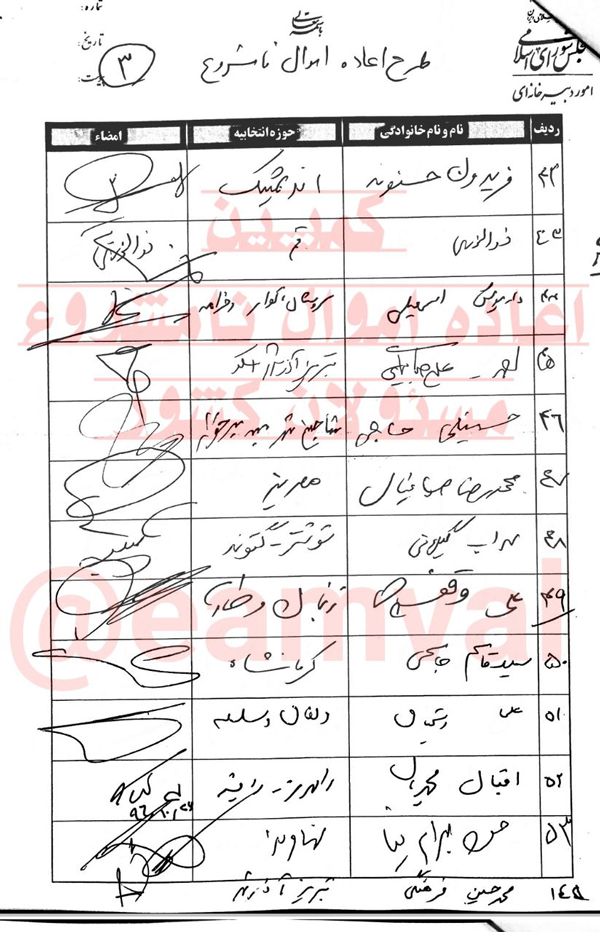 بسمه تعالی
شماره:
تاریخ:
۳
مجلس شورای اسلامی
امور دبیرخانه‌ای
طرح اعاده اموال نامشروع
ردیف نام و نام خانوادگی حوزه انتخابیه امضاء
۴۲ فریدون حسنوند اندیمشک
۴۳ ذوالنوری قم ذوالنوری
۴۴ داریوش اسمعیلی سروستان، کوار و خرامه
۴۵ علیرضابیگی تبریز آذرشهر اسکو
۴۶ حسینعلی حاجی شاهین شهر میمه برخوار
۴۷ محمدرضا صباغیان مهریز
۴۸ سهراب گیلانی شوشتر - گتوند
۴۹ علی وقفچی زنجان و طارم
۵۰ سید قاسم جاسمی کرمانشاه
۵۱ علی دلفان و سلسله
۵۲ اقبال محمدیان رامهرمز - رامشیر
۵۳ حسن بهرام نیا نهاوند
۱۴۸ محمدحسین فرهنگی تبریز آذرشهر
کمپین
اعاده اموال نامشروع
مسئولان کشور
@eamval